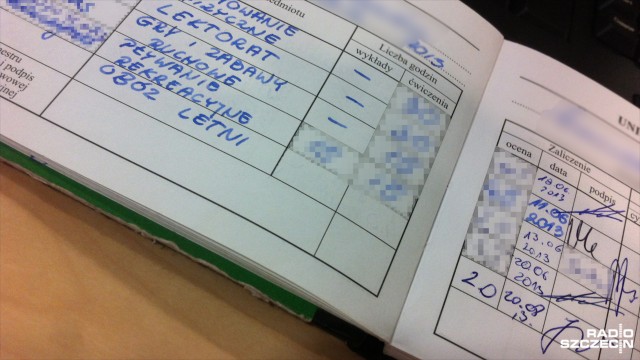 miotu
LEKTORAT
GRY I ZABAWY
RUCHOWE
PŁYWANIE
REKREACYJNE
OBÓZ
LETNI
2013
Liczba godzin
wykłady
ćwiczenia
–
–
–
estru
i podpis
wowej
jnej
UNI
Zaliczenie
ocena
data
podpis
18.06
2013
11.06
2013
13.06
2013
20.06
2013
2.0
20.09
13.
RADIO
SZCZECIN